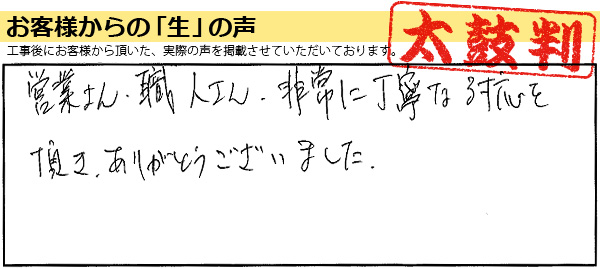 お客様からの「生」の声
太鼓判
工事後にお客様から頂いた、実際の声を掲載させていただいております。
営業さん、職人さん、非常に丁寧な対応を
頂き、ありがとうございました。